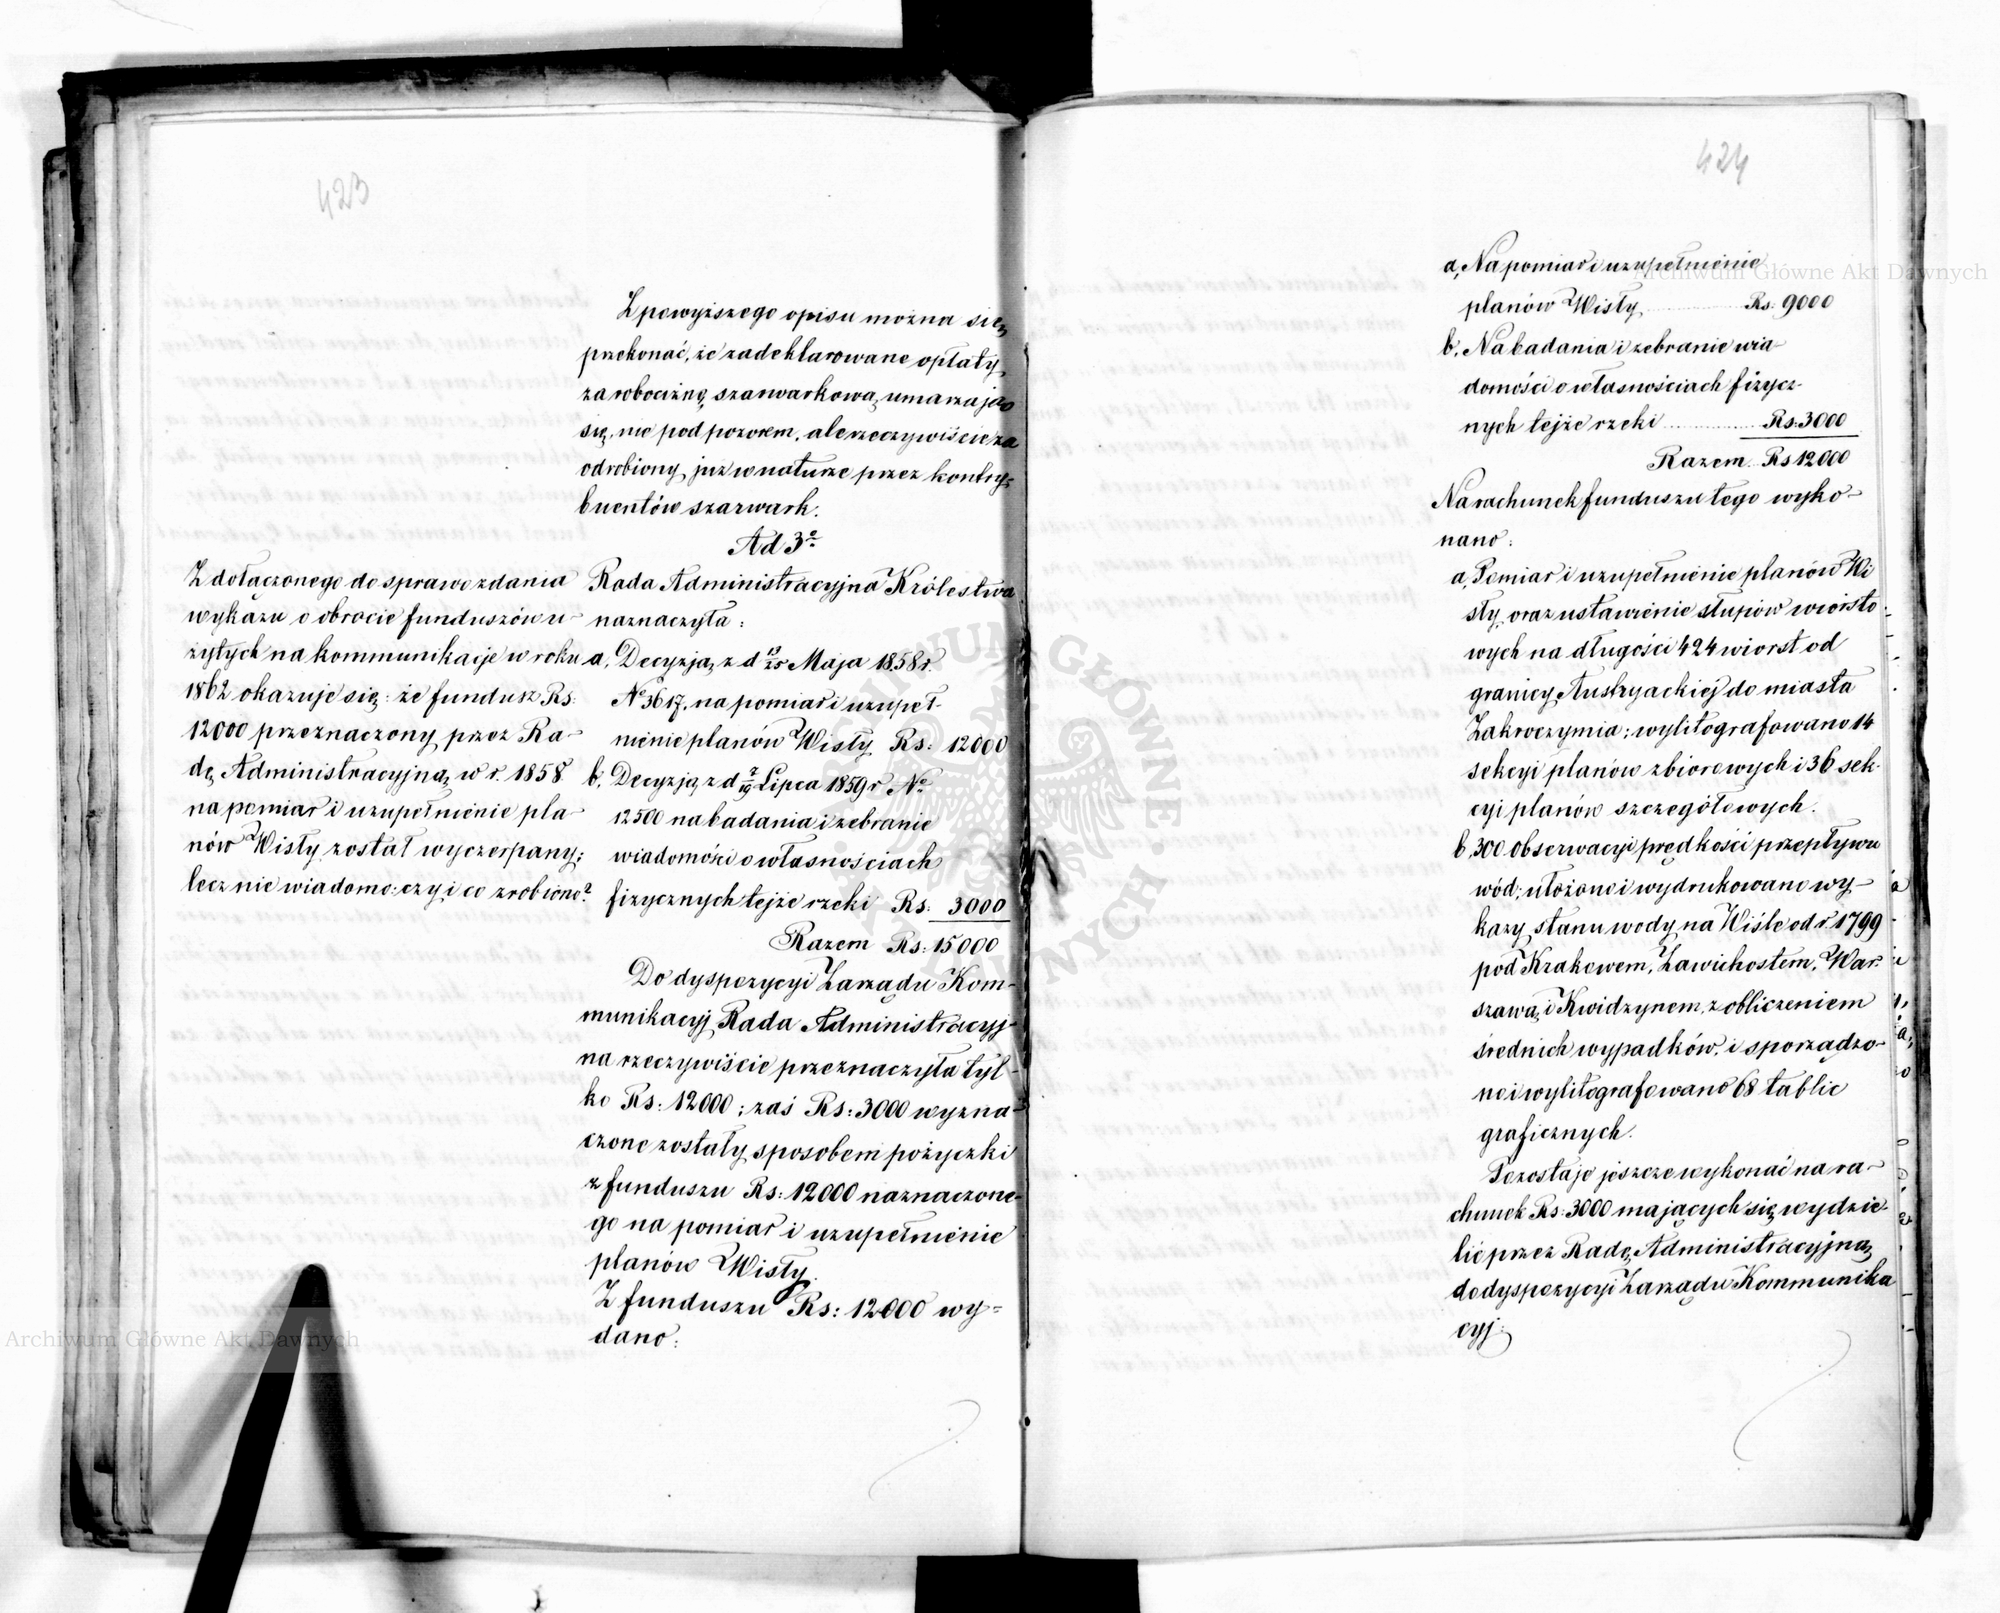 423
Z powyższego opisu można się
przekonać, że zadeklarowane opłaty
za robociznę szarwarkową umarzają
się, nie pod pozorem, ale rzeczywiście za
odrobiony już w naturze przez kontry-
buentów szarwark.
Ad 3º
Z dołączonego do sprawozdania
wykazu o obrocie funduszów u-
żytych na kommunikacje w roku
1862 okazuje się: że fundusz Rs:
12000 przeznaczony przez Ra-
dę Administracyjną w r. 1858
na pomiar i uzupełnienie pla-
nów Wisły został wyczerpany;
lecz nie wiadomo: czy i co zrobiono?
Rada Administracyjna Królestwa
naznaczyła:
a, Decyzją z d 13/25 Maja 1858 r.
Nº 3617, na pomiar i uzupeł-
nienie planów Wisły Rs: 12000
b, Decyzją z d 7/19 Lipca 1859 r Nº
12500 na badania i zebranie
wiadomości o własnościach
fizycznych tejże rzeki Rs: 3000
Razem Rs: 15000
Do dyspozycyi Zarządu Kom-
munikacyj Rada Administracyj-
na rzeczywiście przeznaczyła tyl-
ko Rs: 12000; zaś Rs: 3000 wyzna-
czone zostały sposobem pożyczki
z funduszu Rs: 12000 naznaczone-
go na pomiar i uzupełnienie
planów Wisły.
Z funduszu Rs: 12000 wy=
dano:
424
a, Na pomiar i uzupełnienie
planów Wisły Rs: 9000
b, Na badania i zebranie wia-
domości o własnościach fizycz-
nych tejże rzeki Rs: 3000
Razem Rs 12000
Na rachunek funduszu tego wyko-
nano:
a, Pomiar i uzupełnienie planów Wi
sły, oraz ustawienie słupów wiorsto
wych na długości 424 wiorst od
granicy Austryackiej do miasta
Zakroczymia; wylitografowano 14
sekcyi planów zbiorowych i 36 sek-
cyi planów szczegółowych.
b, 300 obserwacyi prędkości przepływu
wód; ułożono i wydrukowano wy-
kazy stanu wody na Wiśle od r. 1799
pod Krakowem, Zawichostem, War-
szawą i Kwidzynem, z obliczeniem
średnich wypadków, i sporządzo-
no i wylitografowano 68 tablic
graficznych.
Pozostaje jeszcze wykonać na ra-
chunek Rs: 3000 mających się wydzie-
lić przez Radę Administracyjną
do dyspozycyi Zarządu Kommunika
cyj:
Archiwum Główne Akt Dawnych
Archiwum Główne Akt Dawnych
ARCHIWUM GŁÓWNE AKT DAWNYCH